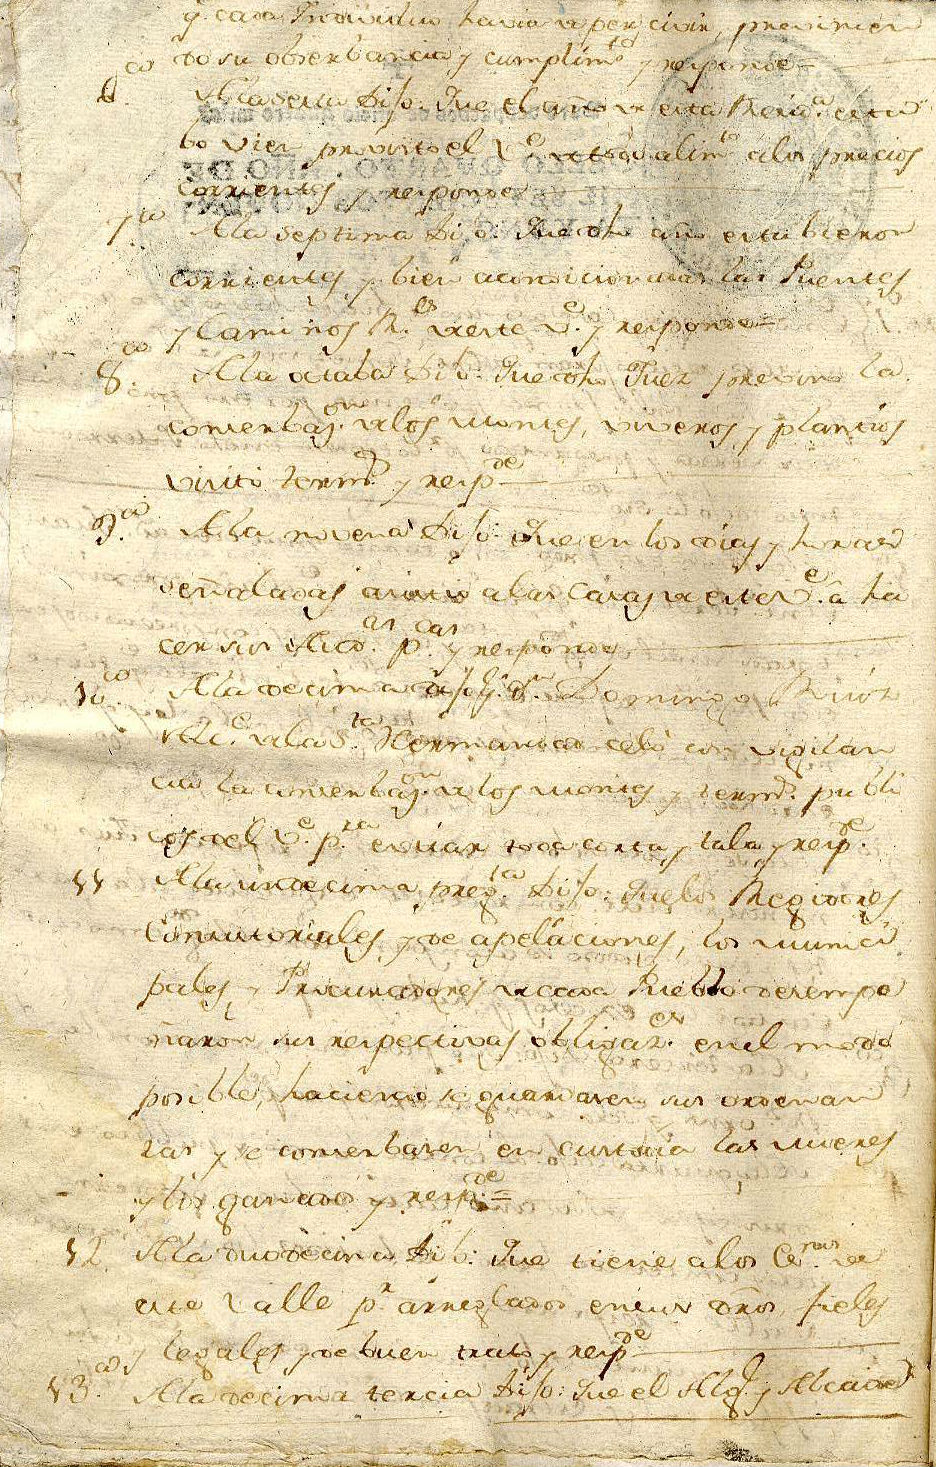 q.e cada Individuo havia de percivir, previnien
do su observancia y cumplim.to y responde
6.ta A la sexta Dijo: Que el año de esta Resid.a estu
bo vien provisto el V.e de todo alim.to a los precios
corrientes y responde
7.ta A la septima Dijo: Que dho año estubieron
corrientes y bien acondicionadas las Puentes
y Caminos R.es de este V.e y responde
8.ta A la octaba Dijo: Que dho Juez previno la
conserbaz.on de los Montes, viveros, y plantios
visitó term.s y resp.de
9.na A la novena Dijo: Que en los dias y horas
señaladas asistio a las Casas de este V.e a ha
cer sus Aud.as p.cas y responde
10.ma A la decima dijo: q.e D.n Domingo Ruiz
Alc.e de la S.ta Hermandad celó con vigilan
cia la conserbaz.on de los Montes y term.s publi
cos del V.e p.ra evitar toda corta y tala y resp.de
11 A la undecima preg.ta Dijo: Que los Regidores
Consistoriales, y de apelaciones, los Munici
pales, y Procuradores de cada Pueblo desempe
ñaron sus respectivas obligaz.es en el modo
posible, haciendo se guardasen sus ordenan
zas y se conserbasen en custodia las mieses
y los ganados y resp.de
12. A la duodecima Dijo: Que tiene a los Es.nos de
este Valle p.r arreglados en sus dros, fieles
y legales y de buen trato y resp.de
13.a A la decima tercia Dijo: Que el Alg.l y Alcaide